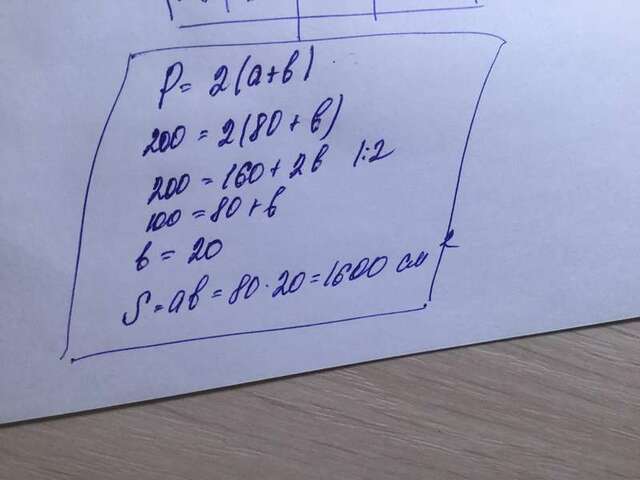 P = 2(a+b)
200 = 2(80 + b)
200 = 160 + 2b 1:2
100 = 80 + b
b = 20
S = ab = 80 · 20 = 1600 см²